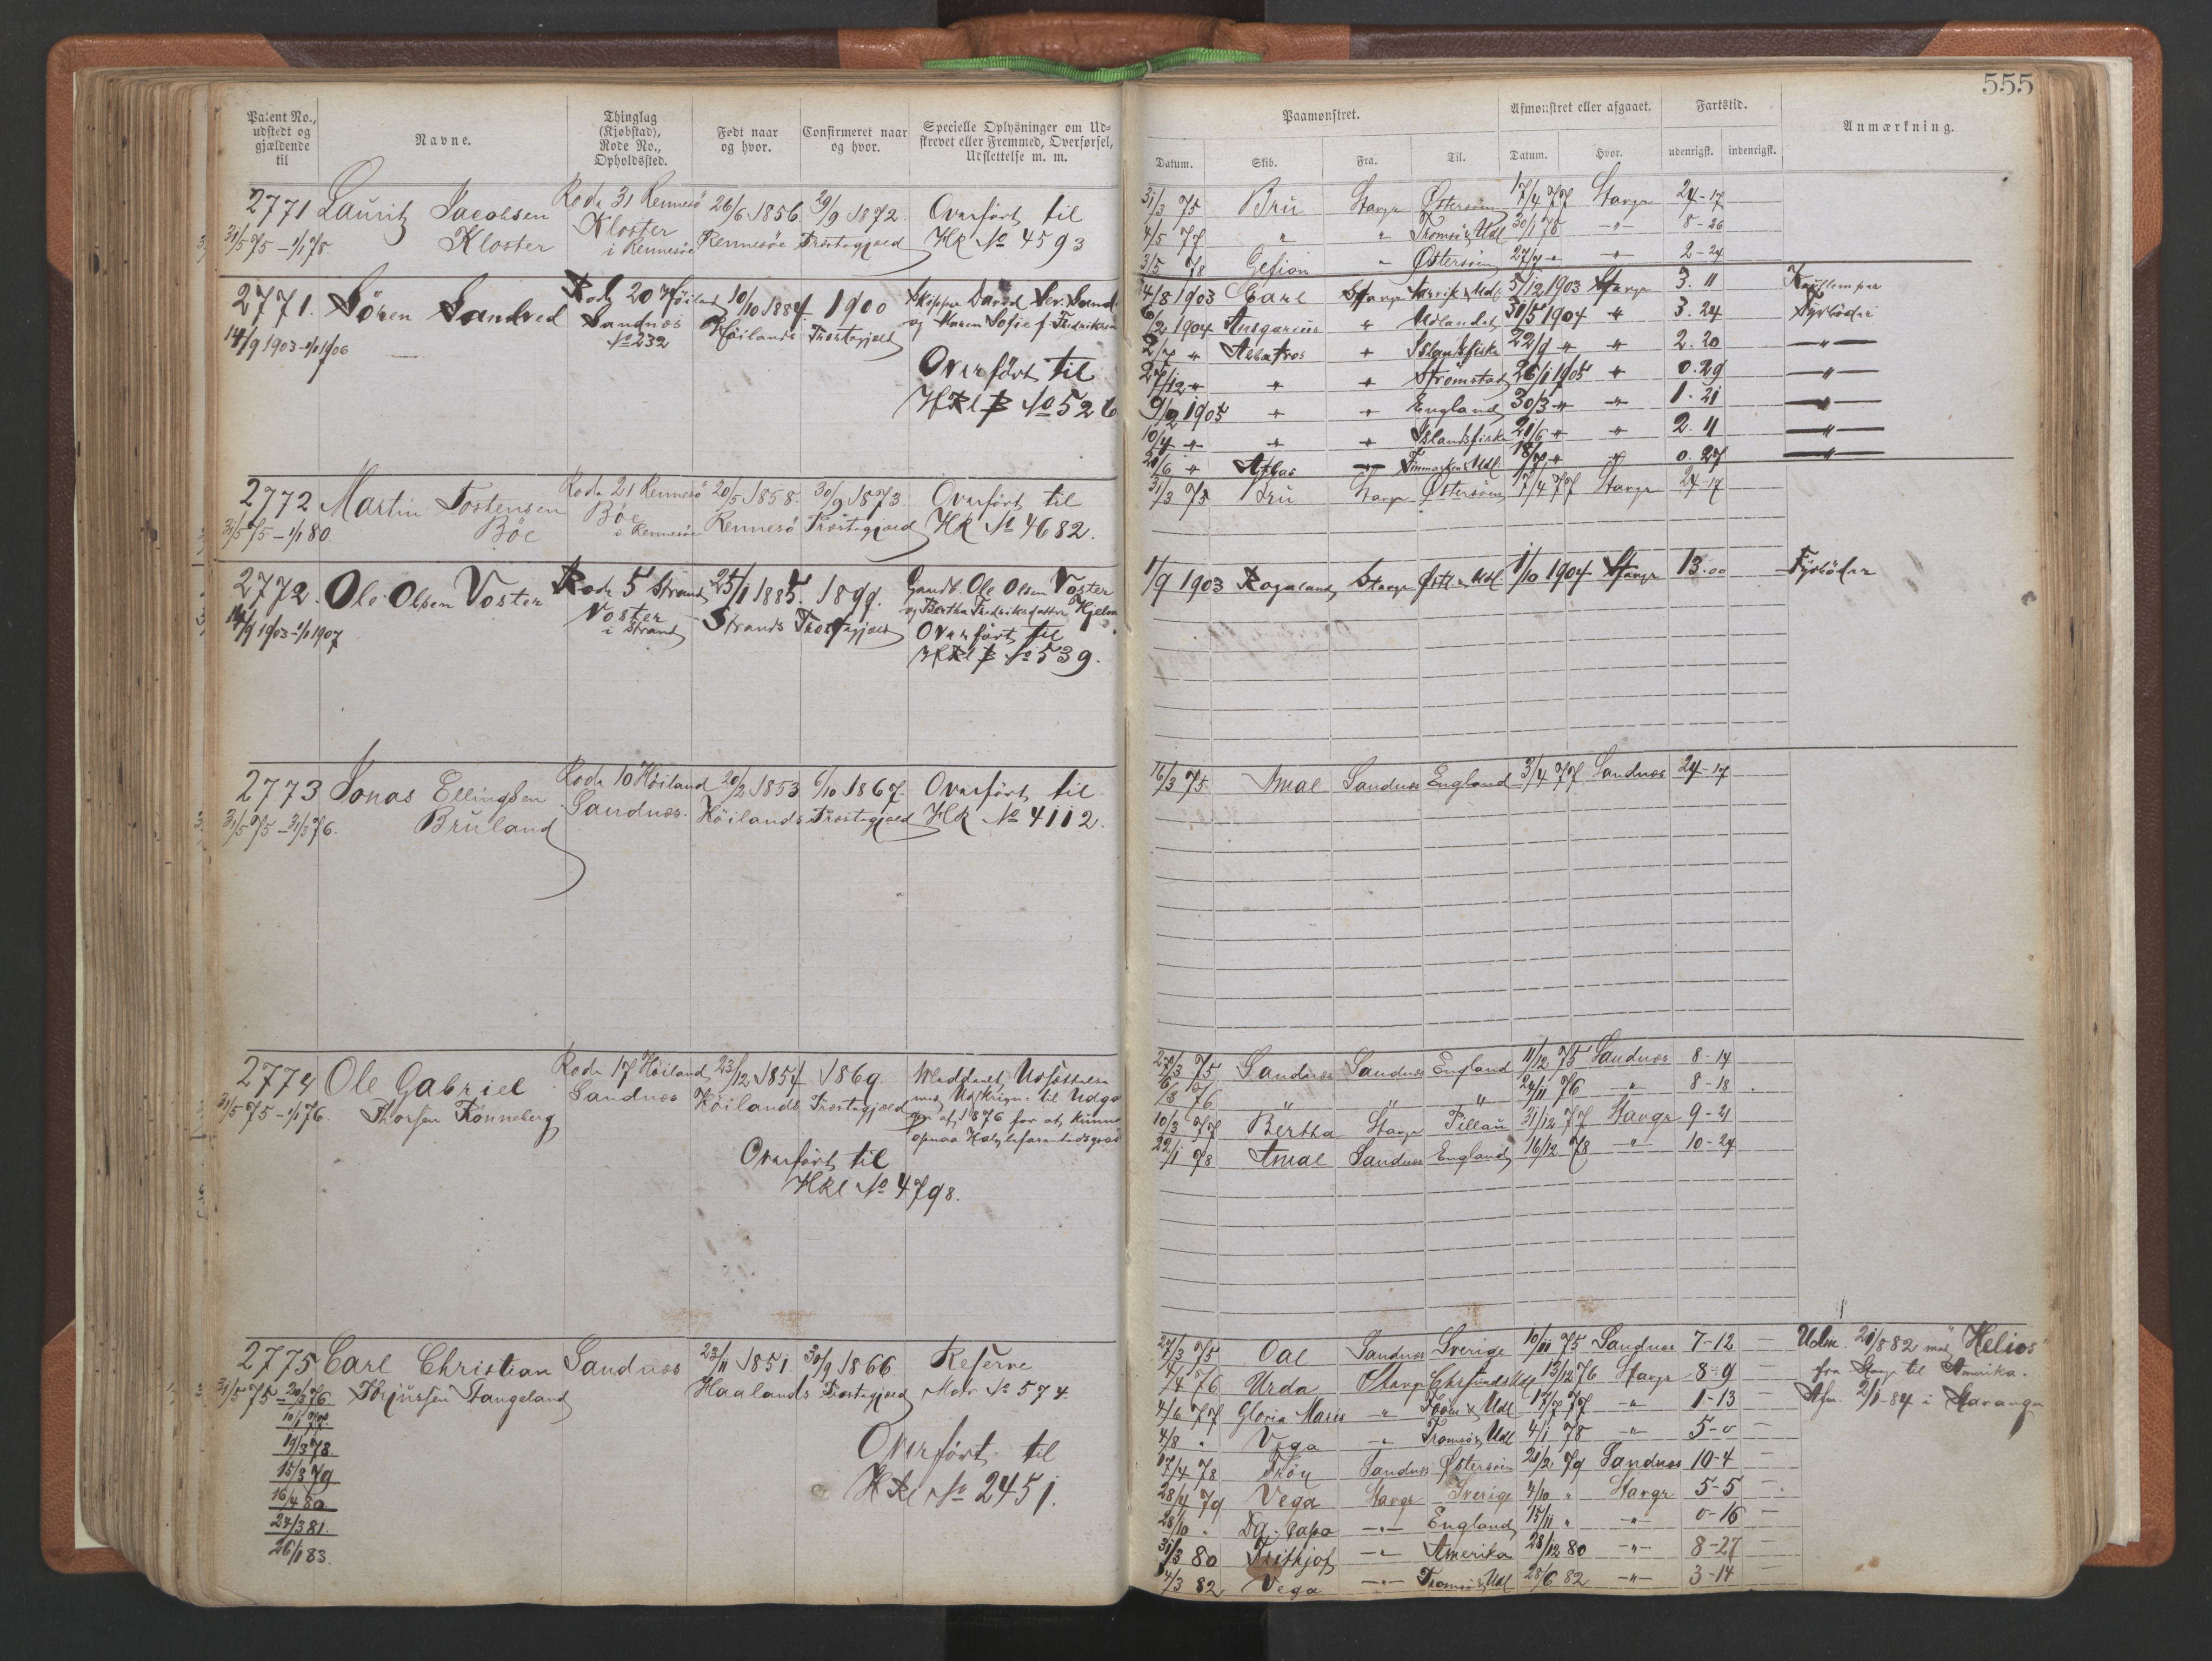 555
Patent No., udstedt og gjældende til
Navne.
Thinglag (Kjøbstad), Rode No., Opholdssted.
Født naar og hvor.
Confirmeret naar og hvor.
Specielle Oplysninger om Udskrevet eller Fremmed, Overførsel, Udslettelse m. m.
Paamønstret.
Afmønstret eller afgaaet.
Fartstid.
Anmærkning.
Datum. Skib. Fra. Til. Datum. Hvor. udenrigsk. indenrigsk.
2771 Lauritz Jacobsen Rode 31 Rennesö 26/6 1856 29/9 1872. Overført til
31/5 75 - 1/1 78. Kloster Kloster i Rennesöe Rennesöe Provstegjæld HR No 4593
31/3 75 Bru Stavgr Østersöen 17/4 77 Stavgr 24-17
4/5 77 " " Tromsö & Udl 30/1 78 -"- 8-26
3/5 78 Gefion " Østersöen 27/7 " -"- 2-24
2771. Sören Sandved Rode 20 Höiland 10/10 1884 1900 Skipper David Sev. Sand
14/9 1903 - 1/1 1906 Sandnes No 232 Höilands Provstegjæld og Maren Sofie f. Fredriksen
Overført til
HRl B No 526
24/8 1903 Carl Stavgr Narvik & Udl. 5/12 1903 Stavgr 3. 11 Kullemper
6/2 1904 Ansgarius " Udlandet 30/5 1904 " 3. 24 Fyrböder
2/7 " Albatros " Islandsfiske 22/9 " " 2. 20 -"-
27/12 " " " Strömstad 26/1 1905 " 0. 29 -"-
9/2 1905 " " England 30/3 " " 1. 21 -"-
10/4 " " " Islandsfiske 21/6 " " 2. 11 -"-
21/6 " Atlas -"- Finmarken & Udl. 18/7 " " 0. 27 -"-
2772 Martin Tostensen Rode 21 Rennesö 20/5 1858. 30/9 1873. Overført til
31/5 75 - 1/1 80. Böe Böe i Rennesöe Rennesö Provstegjæld HR No 4682.
31/3 75 Bru Stavgr Østersöen 17/4 77 Stavgr 24-17
2772. Ole Olsen Voster Rode 5 Strand 25/1 1885. 1899. Gaardb. Ole Olsen Voster
14/9 1903 - 1/1 1907 Voster i Strand Strands Provstegjæld og Bertha Fredriksdatter Hjelm
Overført til
HRl B No 539.
1/9 1903 Rogaland Stavgr Østl & Udl 1/10 1904 Stavgr 13.00 Fyrböder
2773 Jonas Ellingsen Rode 10 Höiland 20/2 1853 6/10 1867. Overført til
31/5 75 - 31/3 76. Bruland Sandnes. Höilands Provstegjæld HR No 4112.
16/3 75 Amal Sandnes England 3/4 77 Sandnes 24-17
2774 Ole Gabriel Rode 17 Höiland 23/12 1854 1869. Meddelt Udsættelse
31/5 75 - 1/1 76. Thorsen Rönneberg Sandnes Höilands Provstegjæld med Udskrivn. til Udgangen af 1876 for at kunne
opnaa
Overført til
HRl No 4798.
27/3 75 Sandnes Sandnes England 11/12 75 Sandnes 8-14
6/3 76 " " " 24/11 76 -"- 8-18
10/3 77 Bertha Stavgr Pillau 31/12 77 Stavgr 9-21
22/1 78 Amal Sandnes England 16/12 78 -"- 10-24
2775 Carl Christian Sandnes 23/11 1851. 30/9 1866 Reserve
31/5 75 - 20/3 76 Törjussen Tangeland Haalands Provstegjæld Matr No 574
10/1 77.
19/3 78
15/3 79
16/4 80
24/3 81.
26/1 83.
Overført til
HRl No 2451.
27/3 75 Oal Sandnes Sverige 10/11 75 Sandnes 7-12 - Udm. 21/8 82 med "Helios"
4/4 76 Urda Stavgr Chrsunds & Udl 13/12 76 Stavgr 8-9 - fra Stavgr til Amerika.
4/6 77 Gloria Maris " & Udl 17/7 77 -"- 1-13 - Afm. 2/1-84 i Stavanger
4/8 " Vega " Tromsö & Udl 4/1 78 -"- 5-0 -
17/4 78 Fröy Sandnes Østersöen 21/2 79 Sandnes 10-4 -
28/4 79 Vega Stavgr Sverige 4/10 " Stavgr 5-5 -
28/10 " -"- England 15/11 " -"- 0-16 -
31/3 80 Frithjof -"- Amerika 28/12 80 -"- 8-27 -
14/3 82 Vega -"- Tromsö & Udl 28/6 82 -"- 3-14 -